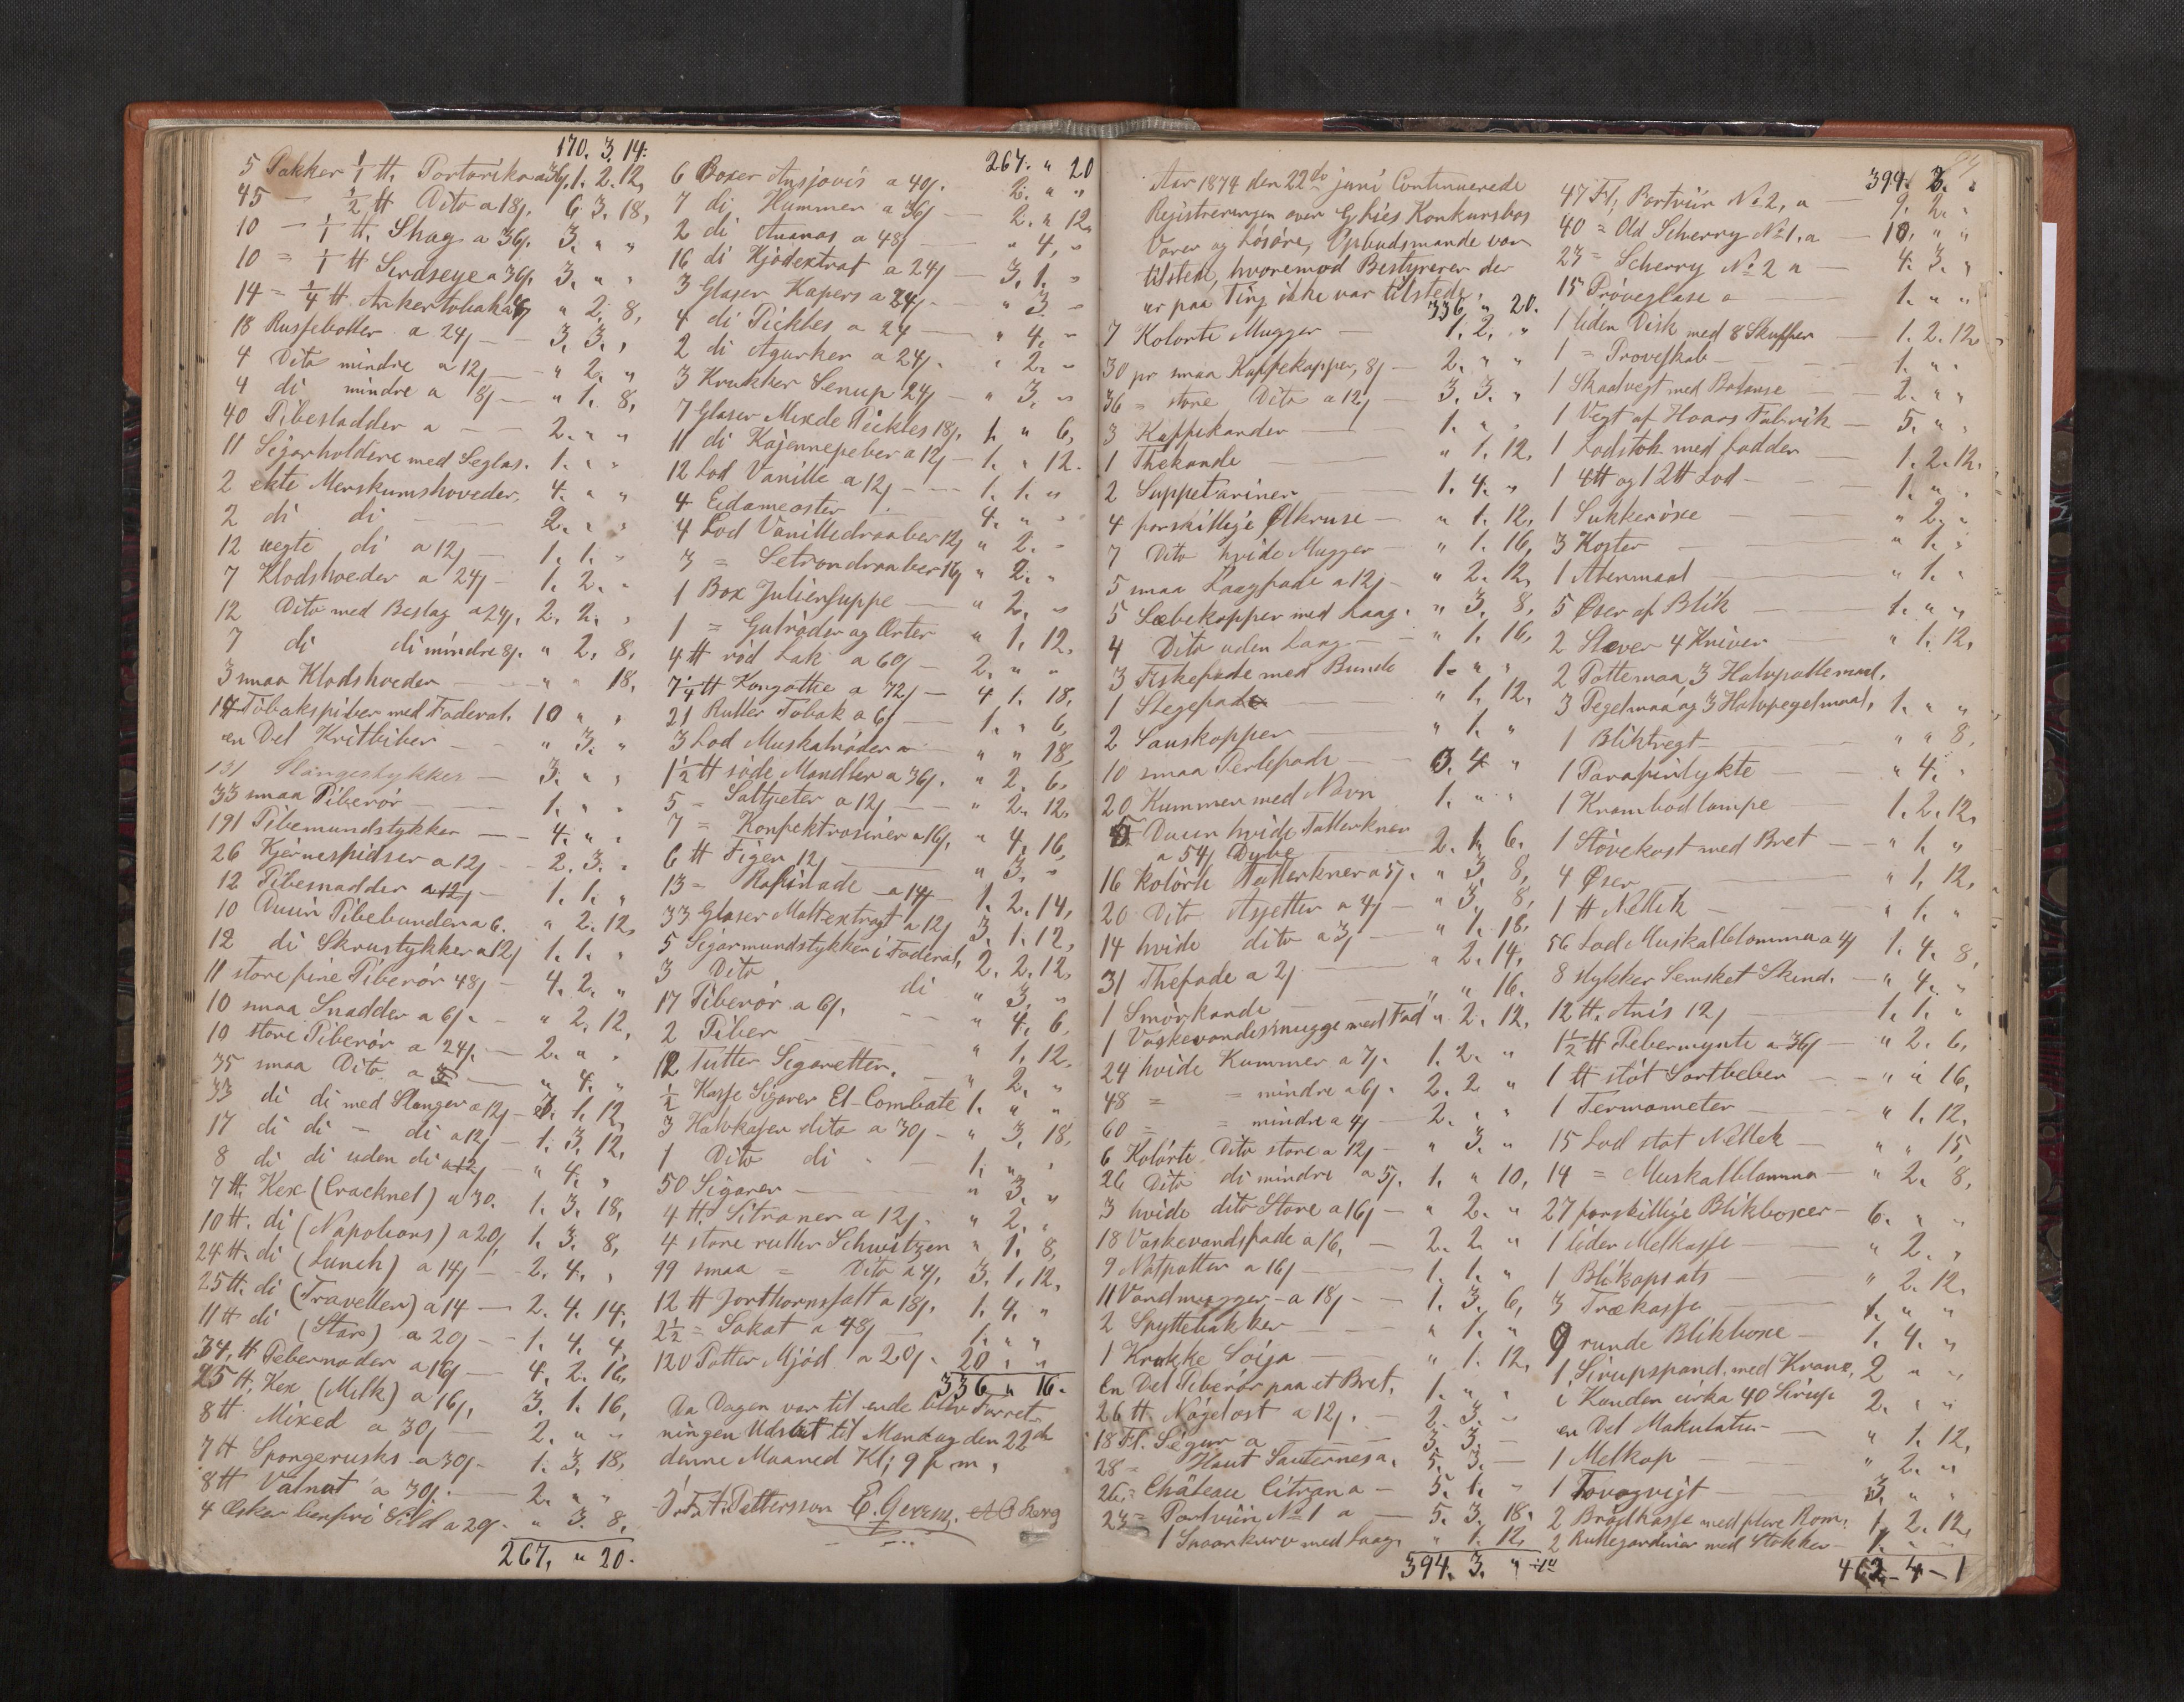 170. 3. 14.
5 Pakker 1/1 ℔. Portoriko a 36ẞ. 1. 2. 12,
45 — 1/2 ℔ Dito a 18ẞ. 6. 3. 18,
10 — 1/1 ℔. Shag a 36ẞ. 3. " "
10 = 1/1 ℔ Birdseye a 36ẞ. 3. " "
14 = 1/4 ℔. Ankertobak " 2. 8,
18 Russebotter a 24ẞ — 3. 3. "
4 Dito mindre a 12ẞ — " 2. "
4 di mindre a 8ẞ — " 1. 8,
40 Pibesladder a — 2. " "
11 Sigarholdere med Seglas. 1. " "
2 ekte Merskumshoveder, 4. " "
2 di di — 2. " "
12 uegte di a 12ẞ — 1. 1. "
7 Klodshoeder a 24ẞ — 1. 2. "
12 Dito med Beslag a 24ẞ. 2. 2. "
7 di di mindre 8ẞ. " 2. 8,
3 smaa Klodshoeder — " " 18,
17 Tobakspiber med Foderal. 10 " "
en Del Kritbiber — " 3. "
131 Slangestykker — 3. " "
33 smaa Piberör — 1. " "
191 Pibemundstykker — 4. " "
26 Kjernespidser a 12ẞ — 2. 3. "
12 Pibesnadder a 12ẞ — 1. 1. "
10 Dusin Pibebunder a 6. " 2. 12,
12 di Skrustykker a 12ẞ 1. 1. "
11 store fine Piberör 48ẞ — 4. 2. "
10 smaa Snadder a 6ẞ. — " 2. 12,
10 store Piberör a 24ẞ. — 2. " "
35 smaa Dito a 3 — " 4. "
33 di di med Slanger a 12ẞ — 3. 1. 12,
17 di di — di a 12ẞ — 1. 3. 12,
8 di di uden di a 12ẞ — " 4. "
7 ℔. Kex (Cracknel) a 30. 1. 3. 18,
10 ℔. di (Napolions) a 20ẞ 1. 3. 8,
24 ℔. di (Lunch) a 14ẞ — 2. 4. "
25 ℔. di (Traveller) a 14 — 2. 4. 14,
11 ℔ di (Star) a 20ẞ — 1. 4. 4,
34, ℔ Pebernøder a 16ẞ — 4. 2. 16,
25 ℔. Kex (Melk) a 16ẞ, 3. 1. 16,
8 ℔ Mixed a 30ẞ — 2. " "
7 ℔ Spongerusks a 30ẞ. 1. 3. 18,
8 ℔ Valnut a 30ẞ. — 2. " "
4 Æsker benfri Sild a 20ẞ. " 3. 8,
267. " 20.
267. " 20
6 Boxer Ansjovis a 40ẞ. 2. " "
7 di Hummer a 36ẞ — 2. " 12,
2 di Ananas a 48ẞ — " 4, "
16 di Kjödextrat a 24ẞ — 3. 1. "
3 Glaser Kapers a 24ẞ. " 3. "
4 di Pickles a 24 — " 4, "
2 di Agurker a 24ẞ. " 2. "
3 Krukker Senup 24ẞ — " 3. "
7 Glaser Mixde Pickles 18ẞ. 1. " 6,
11 di Kajennepeber a 12ẞ — 1. " 12.
12 Lod Vanille a 12ẞ — 1. 1. "
4 Eidameoster — 4. " "
4 Lod Vanilledraaber 12ẞ " 2. "
3 = Setrondraaber 16ẞ " 2. "
1 Box Juliensuppe — " 2. "
1 = Gulröder og Erter " 1. 12,
4 ℔ röd Lak a 60ẞ — 2. " "
7 1/4 ℔ Kongothe a 72ẞ — 4 1. 18,
21 Ruller Tobak a 6ẞ — 1. " 6,
3 Lod Muskatnöder a — " " 18,
1 1/2 ℔ söde Mandler a 36ẞ. " 2. 6,
5 = Saltpeter a 12ẞ — " 2. 12,
7 = Konfektrosiner a 16ẞ. " 4. 16,
6 ℔ Figen 12ẞ — " 3. "
13 = Rafinade a 14ẞ — 1. 2. 14,
33 Glaser Maltextragt a 12ẞ 3. 1. 12,
5 Sigarmundstykker i Foderal, 2. 2. 12,
3 Dito di " 3. "
17 Piberör a 6ẞ. — " 4. 6,
2 Piber — " 1. 12.
12 Tutter Sigaretter. — " 2. "
1/2 Kasse Sigarer El-Combate 1. " "
3 Halvkasser dito a 30ẞ — " 3. 18,
1 Dito di — 1. " "
50 Sigarer — " 3. "
4 ℔. Sitroner a 12ẞ. " 2. "
4 store ruller Schwitzen " 1. 8,
99 smaa = Dito a 4ẞ. 3. 1. 12,
12 ℔ Jorthornssalt a 18ẞ. 1. 4. "
2 1/2 = Sukat a 48ẞ — 1. " "
120 Potter Mjöd a 20ẞ. 20 " "
336 " 16.
Da Dagen var til ende blev Forret-
ningen Udsat til Mandag den 22de
denne Maaned Kl; 9 f. m.
Pettersson E. Gverse. Berg
Aar 1874 den 22de juni Continuerede
Registreringen over G. Lies Konkursbos
Varer og Lösöre, Opbudsmande var
tilstede, hvoremod Bestyrerer der
er paa Ting ikke var tilstede.
336 " 20.
7 Kolorte Mugger — 1. 2. "
30 pr smaa Kaffekopper, 8ẞ — 2. " "
36 = store Dito a 12ẞ — 3. 3. "
3 Kaffekander — 1. " "
1 Thekande — " 1. 12,
2 Suppetariner — 1. 4. "
4 forskillige Ølkruse — " 1. 12,
7 Dito hvide Mugger — " 1. 16,
5 smaa Laagfade a 12ẞ — " 2. 12,
5 Sæbekopper med Laag. " 3. 8,
4 Dito uden Laag — " 1. 16,
3 Fiskefade med Bunde 1. " "
1 Stegefade — " 1. 12,
2 Sauskopper — " 1. "
10 smaa Perlefade — 0. 4 "
20 Kummer med Navn 1. " "
5 Dusin hvide Tallerkner
a 54ẞ Dybe 2. 1. 6.
16 kolörte Tallerkner a 5ẞ. " 3. 8,
20 Dito Asjetter a 4ẞ — " 3. 8,
14 hvide dito a 3ẞ — " 1. 18,
31 Thefade a 2ẞ — " 2. 14,
1 Smörkande — " " 16.
1 Vaskevandsmugge med Fad " 2. 12,
24 hvide Kummer a 7ẞ. 1. 2. "
48 = = mindre a 6ẞ. 2. 2 "
60 = = mindre a 4ẞ — 2. " "
6 Kolörte Dito store a 12ẞ — " 3. "
26 Dito di mindre a 5ẞ. 1. " 10,
3 hvide dito Store a 16ẞ — " 2. "
18 Vaskevandsfade a 16, — 2. 2 "
9 Natpotter a 16ẞ — 1. 1. "
11 Vandmugger a 18ẞ — 1. 3. 6,
2 Spyttebakker — " 1. "
1 Krukke Soija — " 1. 12,
En Del Piberör paa et Bret. 1. " "
26 ℔ Nögelost a 12ẞ. — 2. 3. "
18 Fl. Segur a — 3. 3. —
28 = Haut Sauternes a. 5. 3. —
26. = Château Citran a — 5. 1. "
23 = Portviin No 1 a — 5. 3. 18.
1 Snaarkurv med Laag. " 1. 12,
394. 3. "
394. 3. "
47 Fl, Portviin No 2, a — 9. 2. "
40 = Old Scherry No 1. a — 10, " "
23 = Scherry No 2 a — 4. 3. "
15 Pröveglase a — 1. " "
1 liden Disk med 8 Skuffer — 1. 2. 12,
1 = Proveskab — 1. " "
1 Skaalvegt med Balanse — 2. " "
1 Vegt af Haars Fabrik — 5. " "
1 Lodstok med Lodder — 1. 2. 12.
1 4℔ og 1 2℔ Lod — 1. " "
1 Sukkeröxe — " 2. "
3 Koster — " 1. "
1 Alenmaal — " 1. "
5 Øser af Blik — 1. " "
2 Sløver 4 Kniver — " 1. 12,
2 Pottemaa, 3 Halvpottemaal,
3 Pegelmaa og 3 Halvpegelmaal, 1. " "
1 Bliktregt — " " 8,
1 Parafinlykte — " 4. "
1 Krambodlampe — 1. 2. 12,
1 Stövekost med Bret — " 1. "
4 Øser — " 1. 12,
1 ℔ Nellik — " 1. "
56 Lod Muskatblomma a 4ẞ 1. 4. 8,
8 stykker Semsket Skind. — " 4. "
12 ℔. Anis 12ẞ — 1. 1. "
1 1/2 ℔ Pebermynte a 36ẞ — " 2. 6,
1 ℔ stöt Sortbeber — " " 16,
1 Termometer — " 1. 12,
15 Lod stöt Nellek — " " 15,
14 = Muskatblomma — " 2. 8,
27 forskillige Blikboxer — 6. " "
1 liden Melkasse — " 2. "
1 Blikopsats — " 2. 12,
3 Trækasse — 1. " "
9 runde Blikboxe — 1. 4. "
1 Sirupspand, med Krane, 2 " "
i Kanden cirka 40 Sirup 2. " "
en Del Makulatur — " 1. 12,
1 Melkop — " 2. "
1 Tovogvigt — 3. " "
2 Brödkasse med flere Rom. 1. 2. 12,
2 Rullegardiner med Stokker — 1. " "
462 — 4 — 1